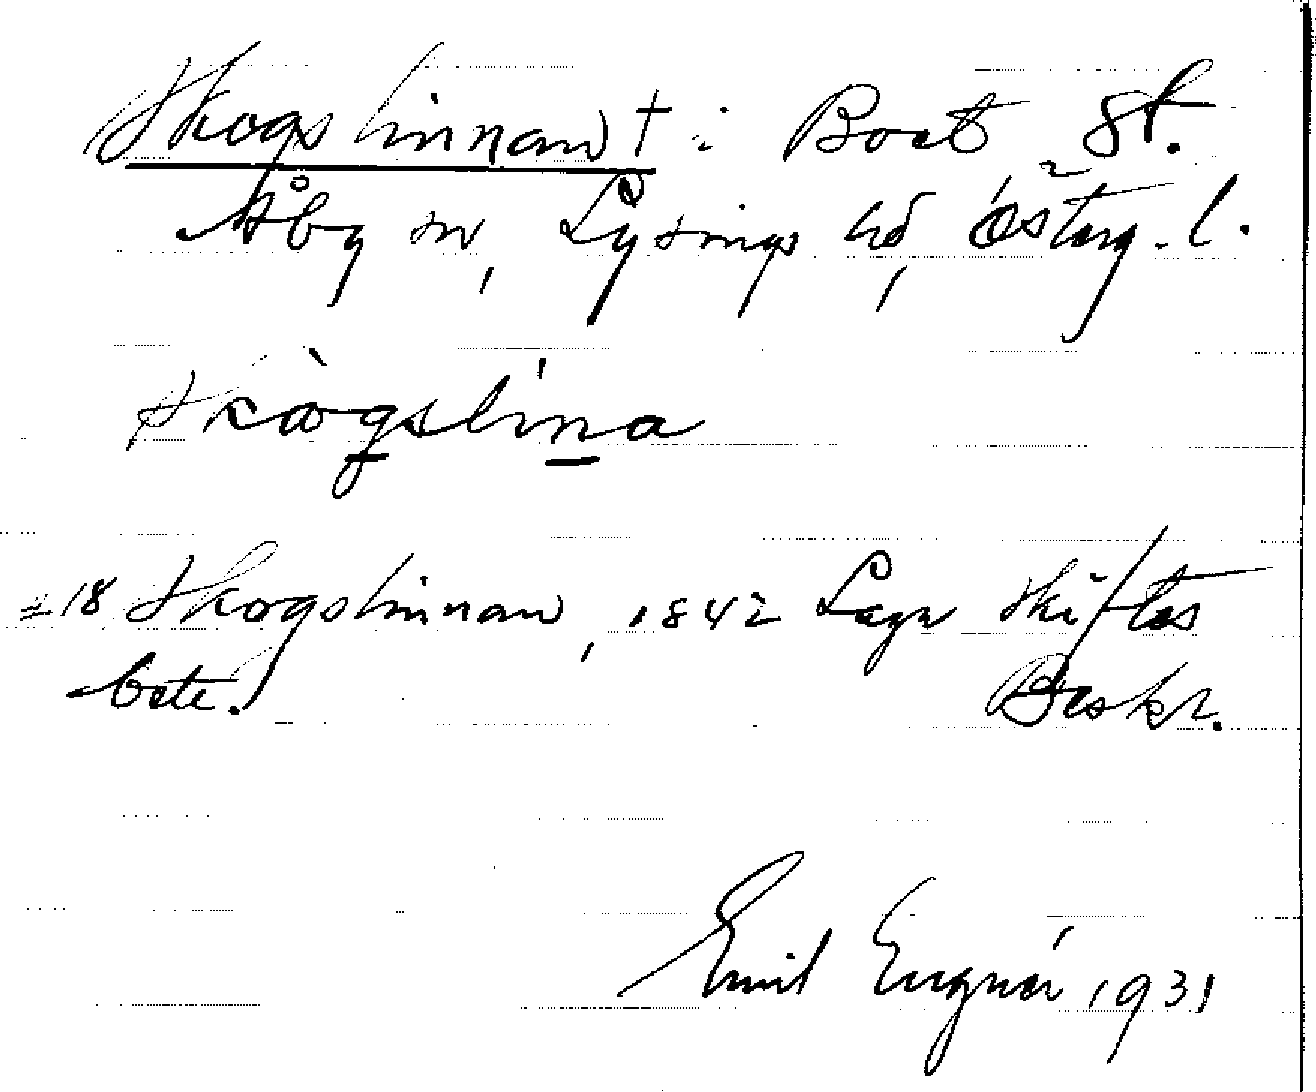 Skogslinnan † i Boet St.
Åby sn, Lysings hd, Österg. l.
skògslína
±18 Skogslinnan, 1842 Laga skiftes
bete. Beskr.
Emil Engnér 1931